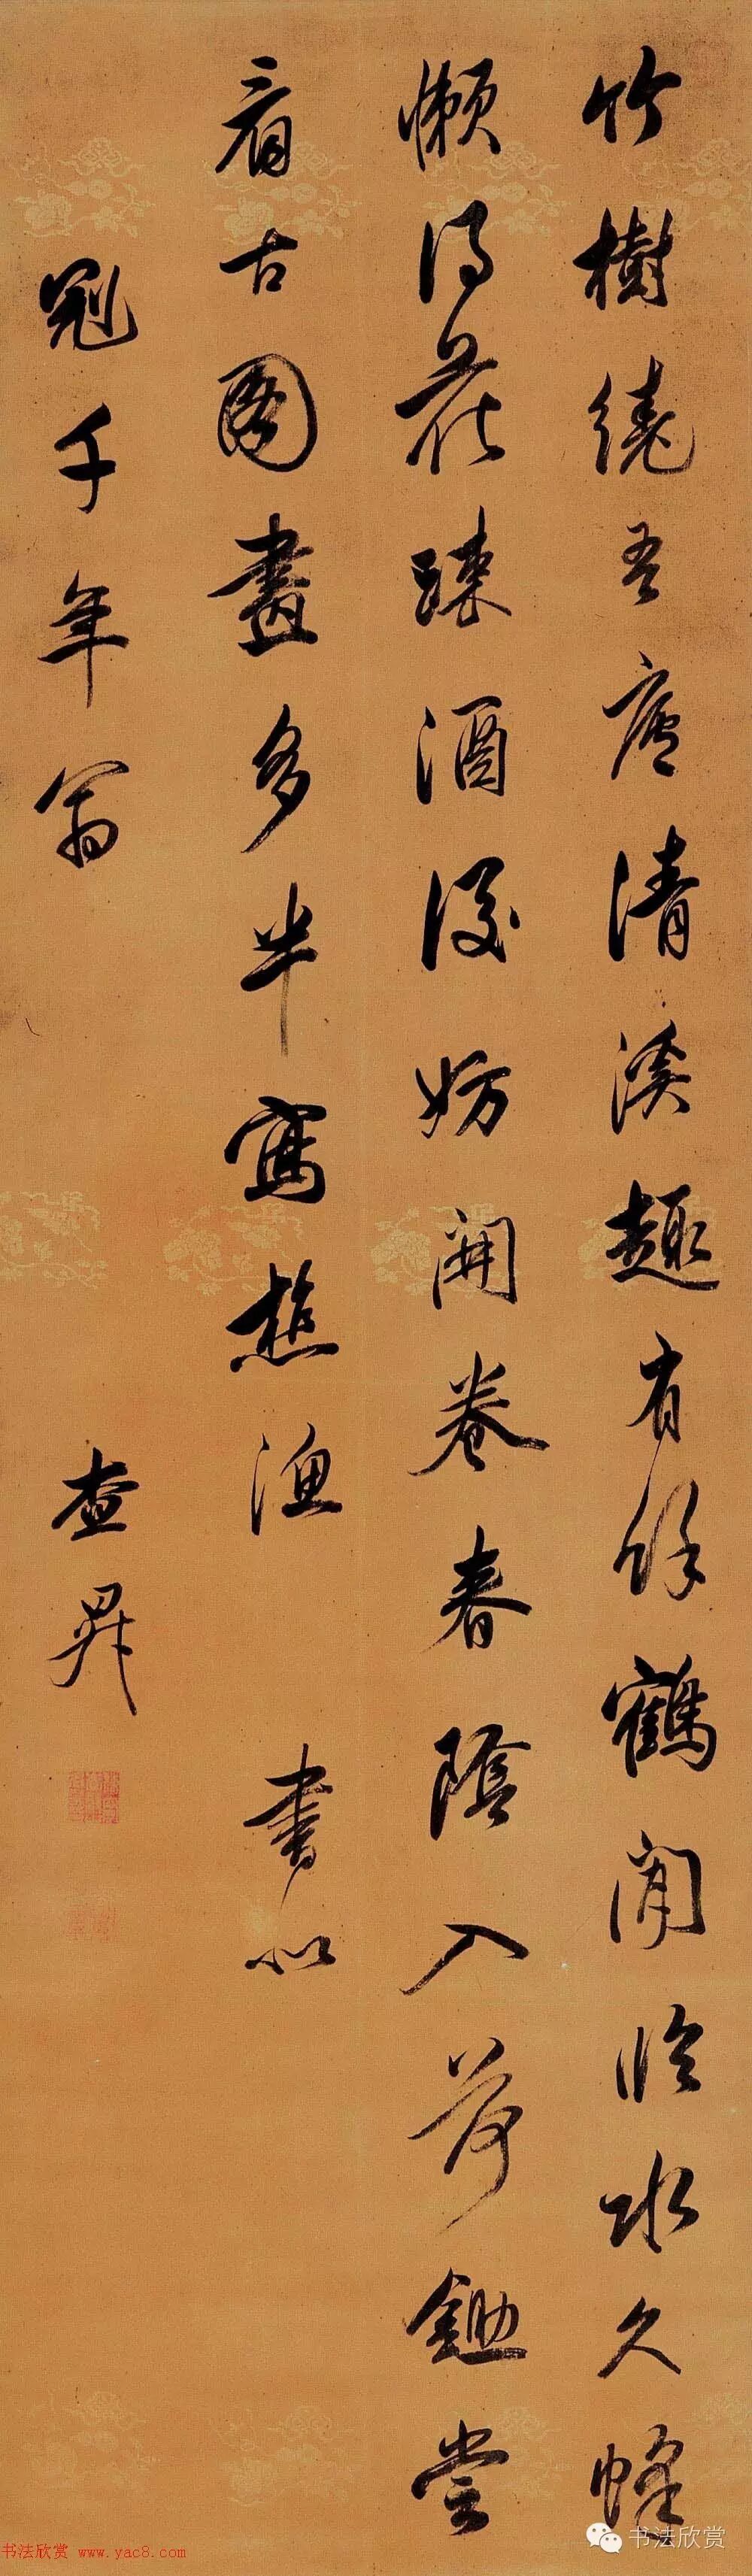 竹樹繞吾廬清溪趣有餘鶴閒臨水久蜂
懶得花疎酒後妨開卷春陰入荷鋤嘗
看古圖畫多半寫樵漁 書似
冠千年翁
查昇
书法欣赏 www.yac8.com
书法欣赏